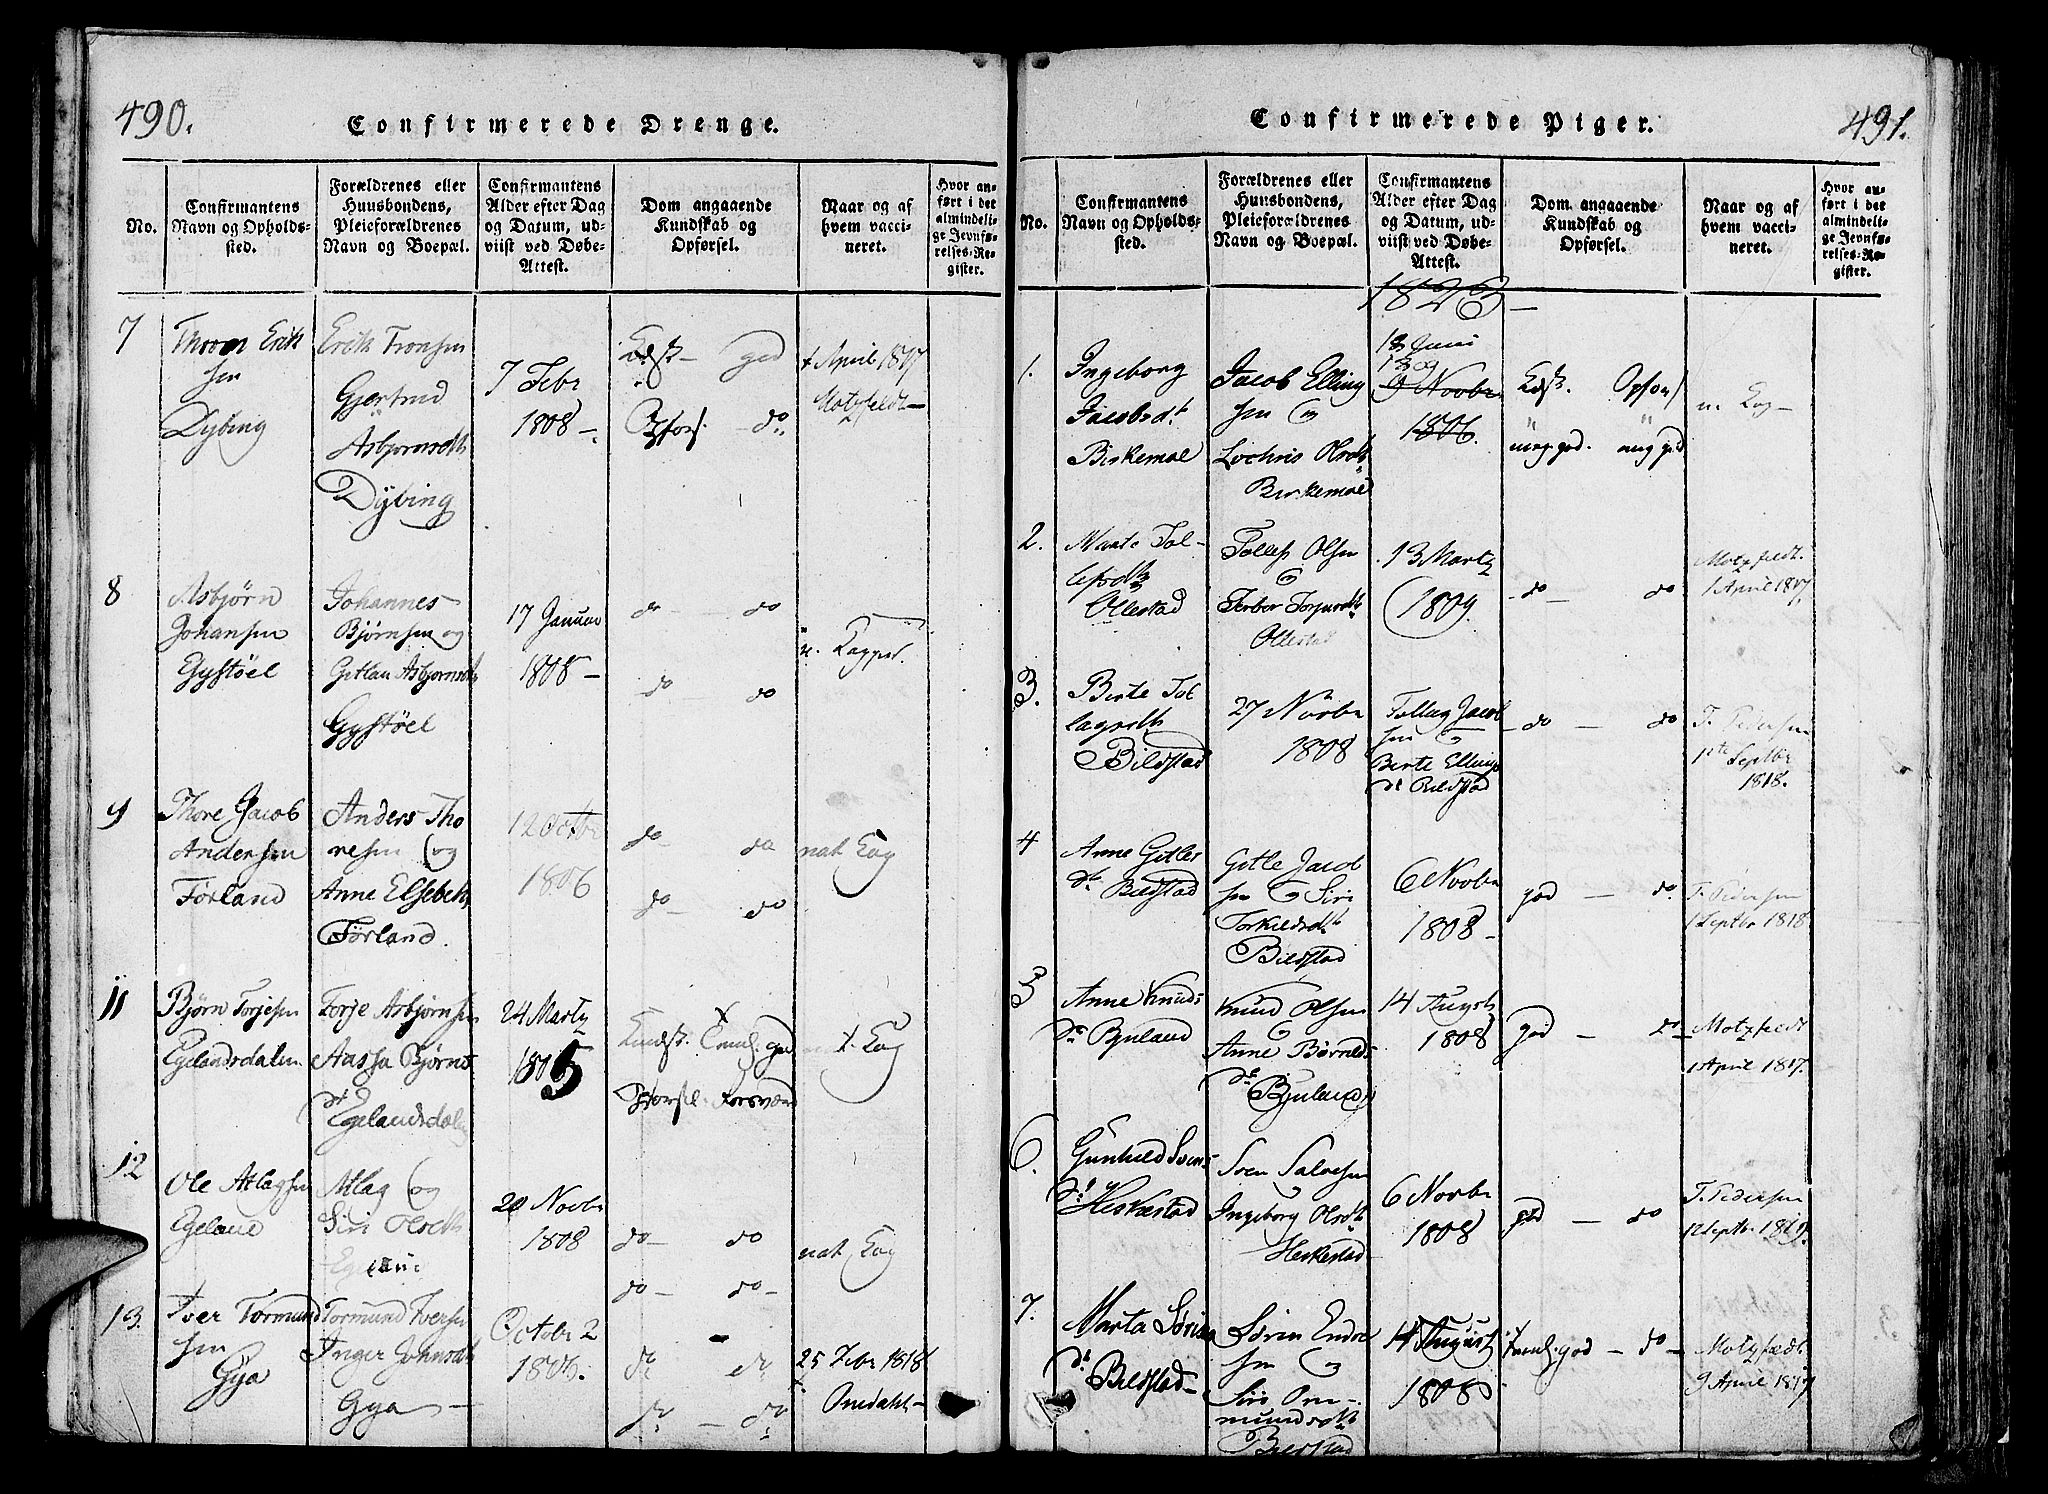 490.
Confirmerede Drenge.
No.
Confirmantens
Navn og Opholds-
sted.
Forældrenes eller
Huusbondens,
Pleieforældrenes
Navn og Boepæl.
Confirmantens
Alder efter Dag
og Datum, ud-
viist ved Døbe-
Attest.
Dom angaaende
Kundskab og
Opførsel.
Naar og af
hvem vacci-
neret.
Hvor an-
ført i det
almindeli-
ge Jevnfø-
relses-Re-
gister.
7
Erik
sen
Dybing
Erik Tronsen
Gjertrud
Asbjørnsdtr
Dybing
7 Febr
1808 -
god
do
April 1817
Motzfeldt
8
Asbjørn
Johansen
Gystøel
Johannes
Bjørnsen og
Asbjørnsdtr
Gystøel
17 Januar
1808 -
do - do
do - do
n. Kopper.
9
Thore Jacob
Andersen
Førland
Anders Tho
resen og
Anne Elsebeth
Førland.
12 Octbr
1806
do - do
do - do
nat Kop
11
Bjørn Torjesen
Egelandsdalen
Torje Asbjørnsen
Aassa Bjørns
dt
Egelandsdalen
24 Marty
1805
Kundsk. god
Kop
12
Ole Atlagsen
Egeland
Atlag og
Siri Olsdtr
20 Novbr
1808
do - do
do - do
nat Kop
13.
Iver Tormund
sen
Gya
Tormund Iversen
Inger Johnsdtr
Gya
Octobr 2
1806.
do do
do - do
25 Febr 1818
Omdahl
491.
Confirmerede Piger.
No.
Confirmantens
Navn og Opholds-
sted.
Forældrenes eller
Huusbondens,
Pleieforældrenes
Navn og Boepæl.
Confirmantens
Alder efter Dag
og Datum, ud-
viist ved Døbe-
Attest.
Dom angaaende
Kundskab og
Opførsel.
Naar og af
hvem vacci-
neret.
Hvor an-
ført i det
almindeli-
ge Jevnfø-
relses-Re-
gister.
1823 -
1.
Ingeborg
Jacobsdt
Birkemoe
Jacob Elling
sen og
Olsdt
Birkemoe
18 Juni
9 Novbr
1806.
meg god. meg god
n. Kop -
2.
Marte Tol-
lefsdtr
Ollestad
Tollef Olsen
og
Ollestad
13 Marty
1809.
do - do
Motzfeldt.
1 April 1817
3.
Berte Tol
lagsdtr
Bilstad
27 Novbr
1808
Tollag Jacob
sen og
Berte Ellings
dt Bilstad
do - do
T. Pedersen
1te Septbr
1818.
4
Anne Gitles
dt Bilstad
Gitle Jacob
sen og Siri
Torkildsdt
Bilstad
6 Novbr
1808 -
god - do
T. Pedersen
1 Septbr 1818
5
Anne Knuds
dt Bjuland
Knud Olsen
og
Anne
dt
Bjuland
14 August
1808
god - do
Motzfeldt
1 April 1817.
6.
Gunhild Svens
dt Heskestad
Sven Salvesen
Ingeborg Olsdt
Heskestad
6 Novbr
1808
god - do
T. Pedersen
12 Septbr
7.
Marta Sørins
dt
Bilstad -
Sørin Endre
sen og
Siri Om-
mundsdt
Bilstad
14 August
1808
god - do -
Motzfeldt
9 April 1817